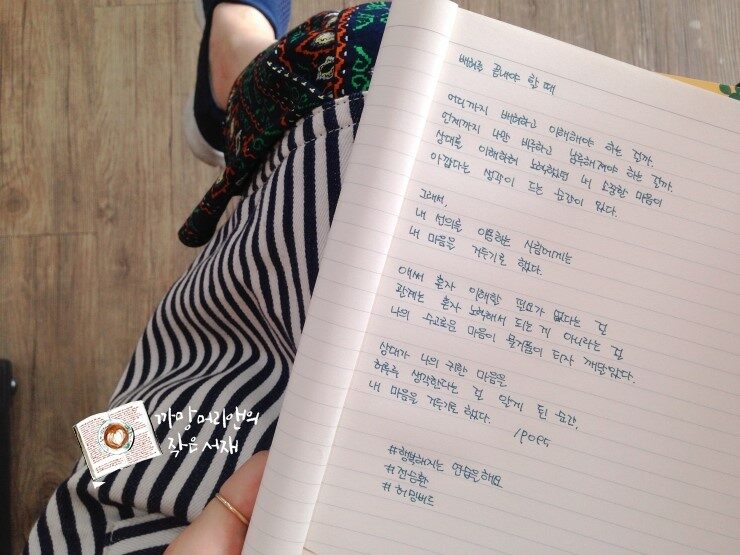 배려를 끝내야 할 때
어디까지 배려하고 이해해야 하는 걸까.
언제까지 나만 비추하고 남을 해줘야 하는 걸까.
상대를 이해하려 노력했던 내 소중한 마음이
아깝다는 생각이 드는 순간이 있다.
그래서,
내 선의를 이용하는 사람에게는
내 마음을 거두기로 했다.
애써 혼자 이해할 필요가 없다는 걸
관계는 혼자 노력해서 되는 게 아니라는 걸
나의 수고로움 마음이 물거품이 되자 깨달았다.
상대가 나의 귀한 마음을
하루룩 생각한다는 걸 알게 된 순간,
내 마음을 거두기로 했다. /poet
#행복해지는 연습을해요
#전승환
#허밍버드
까망머리앤의
작은서재